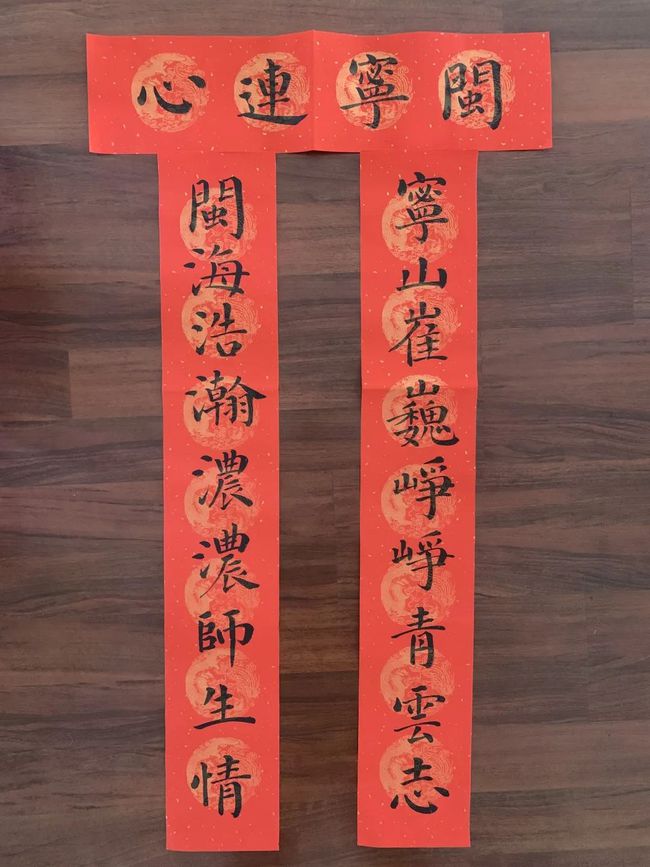 閩寧連心
寧山崔巍崢崢青雲志
閩海浩瀚濃濃師生情